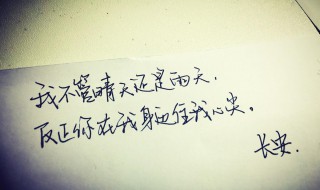 我不管晴天还是雨天.
反正你在我身边住我心尖。
长安.